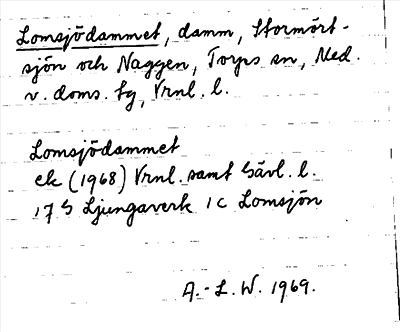 Lomsjödammet, damm, Stormört-
sjön och Naggen, Torps sn, Med.
v. doms. tg, Vrnl. l.
Lomsjödammet
ek (1968) Vrnl. samt Gävl. l.
17 G Ljungaverk 1 c Lomsjön
A.-L. W. 1969.